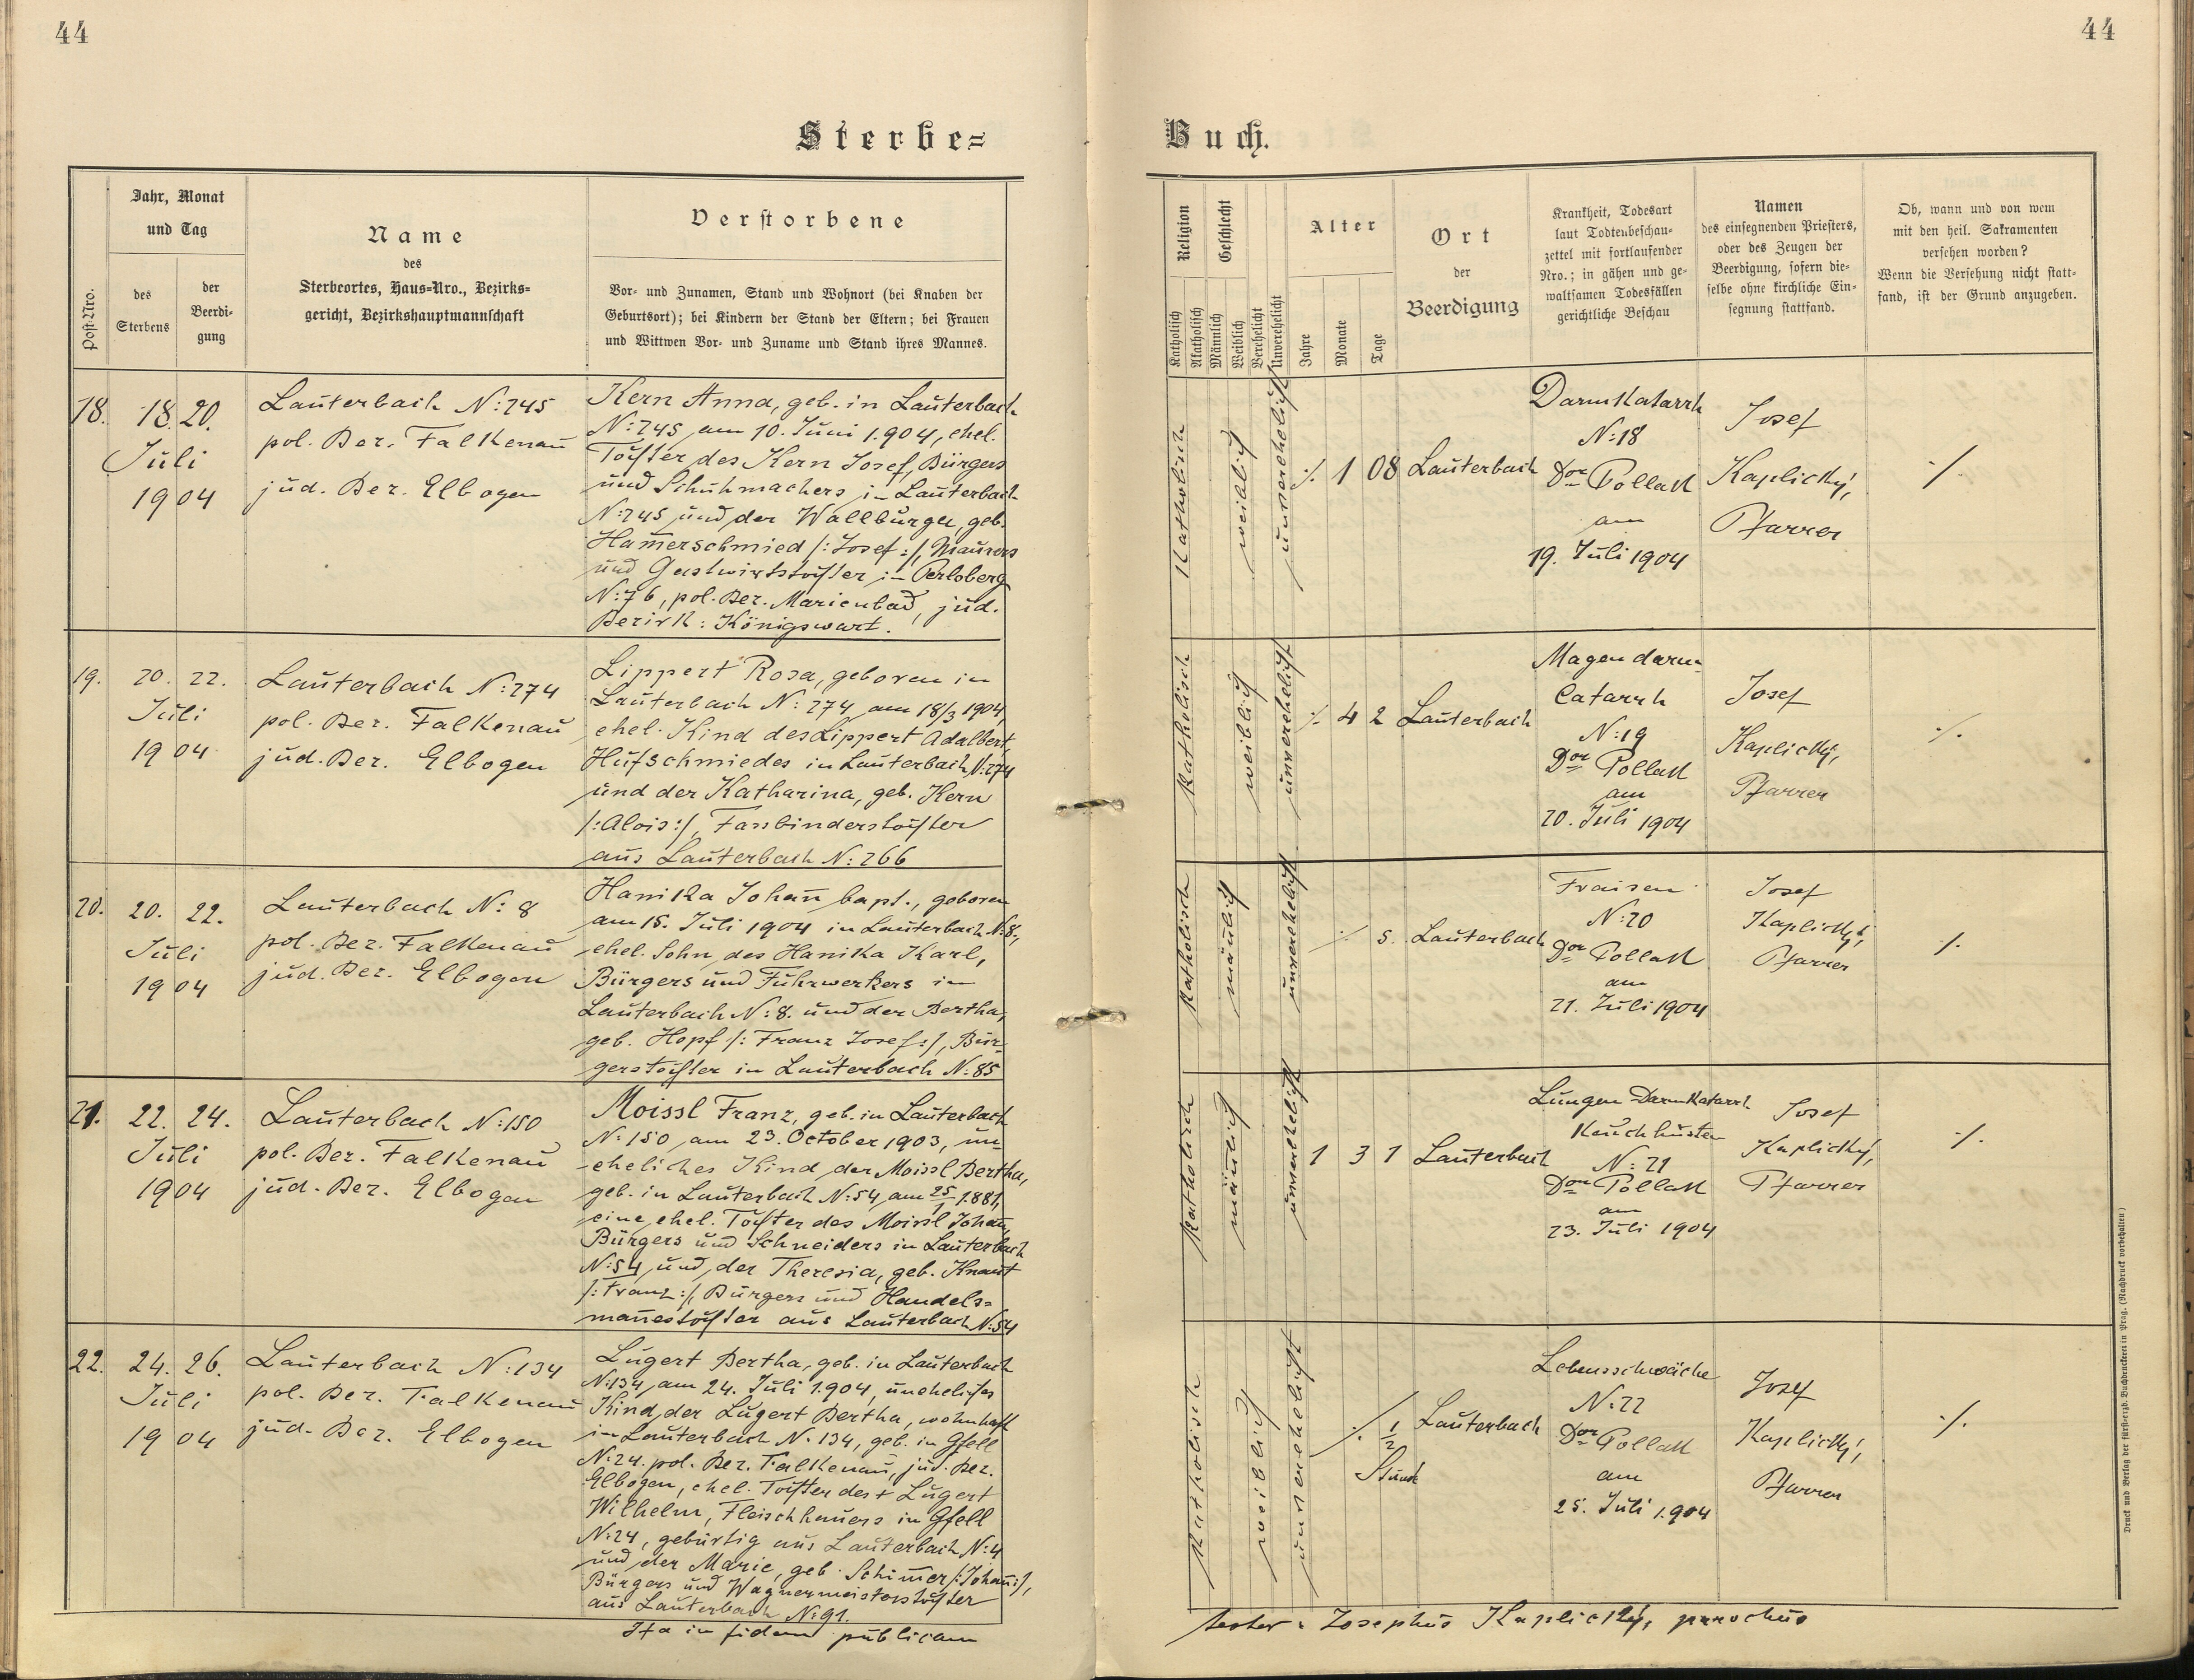 44
44
Sterbe=
Buch.
Post-Nro.
Jahr, Monat
und Tag
des
Sterbens
der
Beerdi-
gung
Name
des
Sterbeortes, Haus=Nro., Bezirks=
gericht, Bezirkshauptmannschaft
Verstorbene
Vor- und Zunamen, Stand und Wohnort (bei Knaben der
Geburtsort); bei Kindern der Stand der Eltern; bei Frauen
und Wittwen Vor- und Zuname und Stand ihres Mannes.
Religion
Katholisch
Akatholisch
Geschlecht
Männlich
Weiblich
Verehelicht
Unverehelicht
Alter
Jahre
Monate
Tage
Ort
der
Beerdigung
Krankheit, Todesart
laut Todtenbeschau-
zettel mit fortlaufender
Nro.; in gähen und ge-
waltsamen Todesfällen
gerichtliche Beschau
Namen
des einsegnenden Priesters,
oder des Zeugen der
Beerdigung, sofern die-
selbe ohne kirchliche Ein-
segnung stattfand.
Ob, wann und von wem
mit den heil. Sakramenten
versehen worden?
Wenn die Versehung nicht statt-
fand, ist der Grund anzugeben.
18.
18. 20.
Juli
1904
Lauterbach N: 245
pol. Bez. Falkenau
jud. Bez. Elbogen
Kern Anna, geb. in Lauterbach
N: 245 am 10. Juni 1.904, ehel.
Tochter des Kern Josef, Bürgers
und Schuhmachers in Lauterbach
N: 245 und der Wallburga, geb.
Ham̄erschmied /: Josef :/, Maurers
und Gastwirtstochter in Perlsberg
N: 76, pol. Bez. Marienbad, jud.
Bezirk: Königswart.
Katholisch
weiblich
unverehelicht
./. 1 08
Lauterbach
Darmkatarrh
N: 18
Dor Pollak
am
19. Juli 1904
Josef
Kaplický,
Pfarrer
./.
19.
20. 22.
Juli
1904
Lauterbach N: 274
pol. Bez. Falkenau
jud. Bez. Elbogen
Lippert Rosa, geboren in
Lauterbach N: 274 am 18/3 1904
ehel. Kind des Lippert Adalbert,
Hufschmiedes in Lauterbach N: 274
und der Katharina, geb. Kern
/: Alois :/, Fassbinderstochter
aus Lauterbach N: 266
Katholisch
weiblich
unverehelicht
./. 4 2
Lauterbach
Magendarm-
Catarrh
N: 19
Dor Pollak
am
20. Juli 1904
Josef
Kaplický,
Pfarrer
./.
20.
20. 22.
Juli
1904
Lauterbach N: 8
pol. Bez. Falkenau
jud. Bez. Elbogen
Hanika Johan̄ bapt., geboren
am 15. Juli 1904 in Lauterbach N: 8,
ehel. Sohn des Hanika Karl,
Bürgers und Fuhrwerkers in
Lauterbach N: 8. und der Bertha,
geb. Hopf /: Franz Josef :/, Bür-
gerstochter in Lauterbach N: 85
Katholisch
män̄lich
unverehelicht
./. 5.
Lauterbach
Fraisen
N: 20
Dor Pollak
am
21. Juli 1904
Josef
Kaplický,
Pfarrer
./.
21.
22. 24.
Juli
1904
Lauterbach N: 150
pol. Bez. Falkenau
jud. Bez. Elbogen
Moissl Franz, geb. in Lauterbach
N: 150 am 23. October 1903, un-
eheliches Kind der Moissl Bertha,
geb. in Lauterbach N: 54 am 25/1 1.881,
eine ehel. Tochter des Moissl Johan̄,
Bürgers und Schneiders in Lauterbach
N: 54 und der Theresia, geb. Knaut
/: Franz :/, Bürgers und Handels=
man̄estochter aus Lauterbach N: 54
Katholisch
män̄lich
unverehelicht
1 3 1
Lauterbach
Lungen Darmkatarrh
Keuchhusten
N: 21
Dor Pollak
am
23. Juli 1904
Josef
Kaplický,
Pfarrer
./.
22.
24. 26.
Juli
1904
Lauterbach N: 134
pol. Bez. Falkenau
jud. Bez. Elbogen
Lugert Bertha, geb. in Lauterbach
N: 134 am 24. Juli 1.904, uneheliches
Kind der Lugert Bertha, wohnhaft
in Lauterbach N. 134, geb. in Gfell
N: 24 pol. Bez. Falkenau, jud. Bez.
Elbogen, ehel. Tochter des + Lugert
Wilhelm, Fleischhauers in Gfell
N: 24, gebürtig aus Lauterbach N: 4
und der Marie, geb. Schim̄er /: Johan̄ :/,
Bürgers und Wagnermeisterstochter
aus Lauterbach N: 91.
Katholisch
weiblich
unverehelicht
./. 1/2
Stunde
Lauterbach
Lebensschwäche
N: 22
Dor Pollak
am
25. Juli 1.904
Josef
Kaplický,
Pfarrer
./.
Ita in fidem publicam
Josephus Kaplický, parochus
Druck und Verlag der fürsterzb. Buchdruckerei in Prag. (Nachdruck vorbehalten)